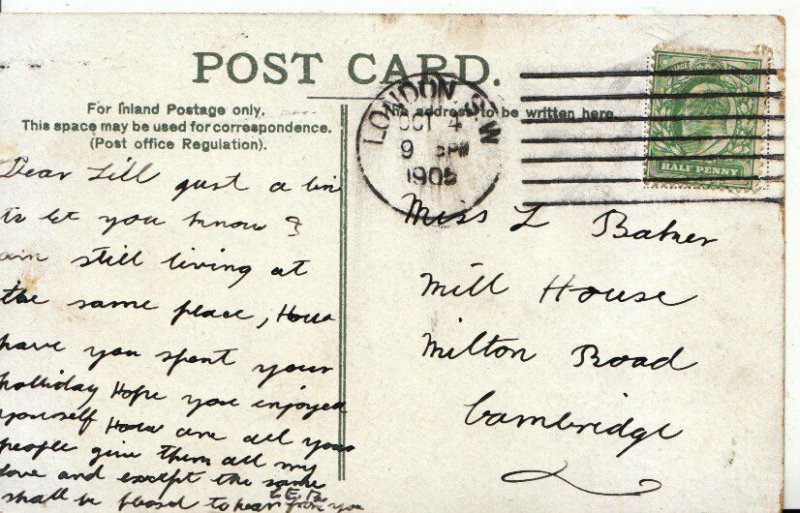 POST CARD.
For Inland Postage only,
This space may be used for correspondence.
(Post office Regulation).
The address to be written here.
LONDON. S.W
OCT 4
9 PM
1905
HALF PENNY
Dear Lill just a lin
to let you know I
am still living at
the same place, How
have you spent your
holliday Hope you enjoyed
yourself How are all your
people give them all my
love and except the same
shall be pleased to hear from you
Miss L Baker
Mill House
Milton Road
Cambridge